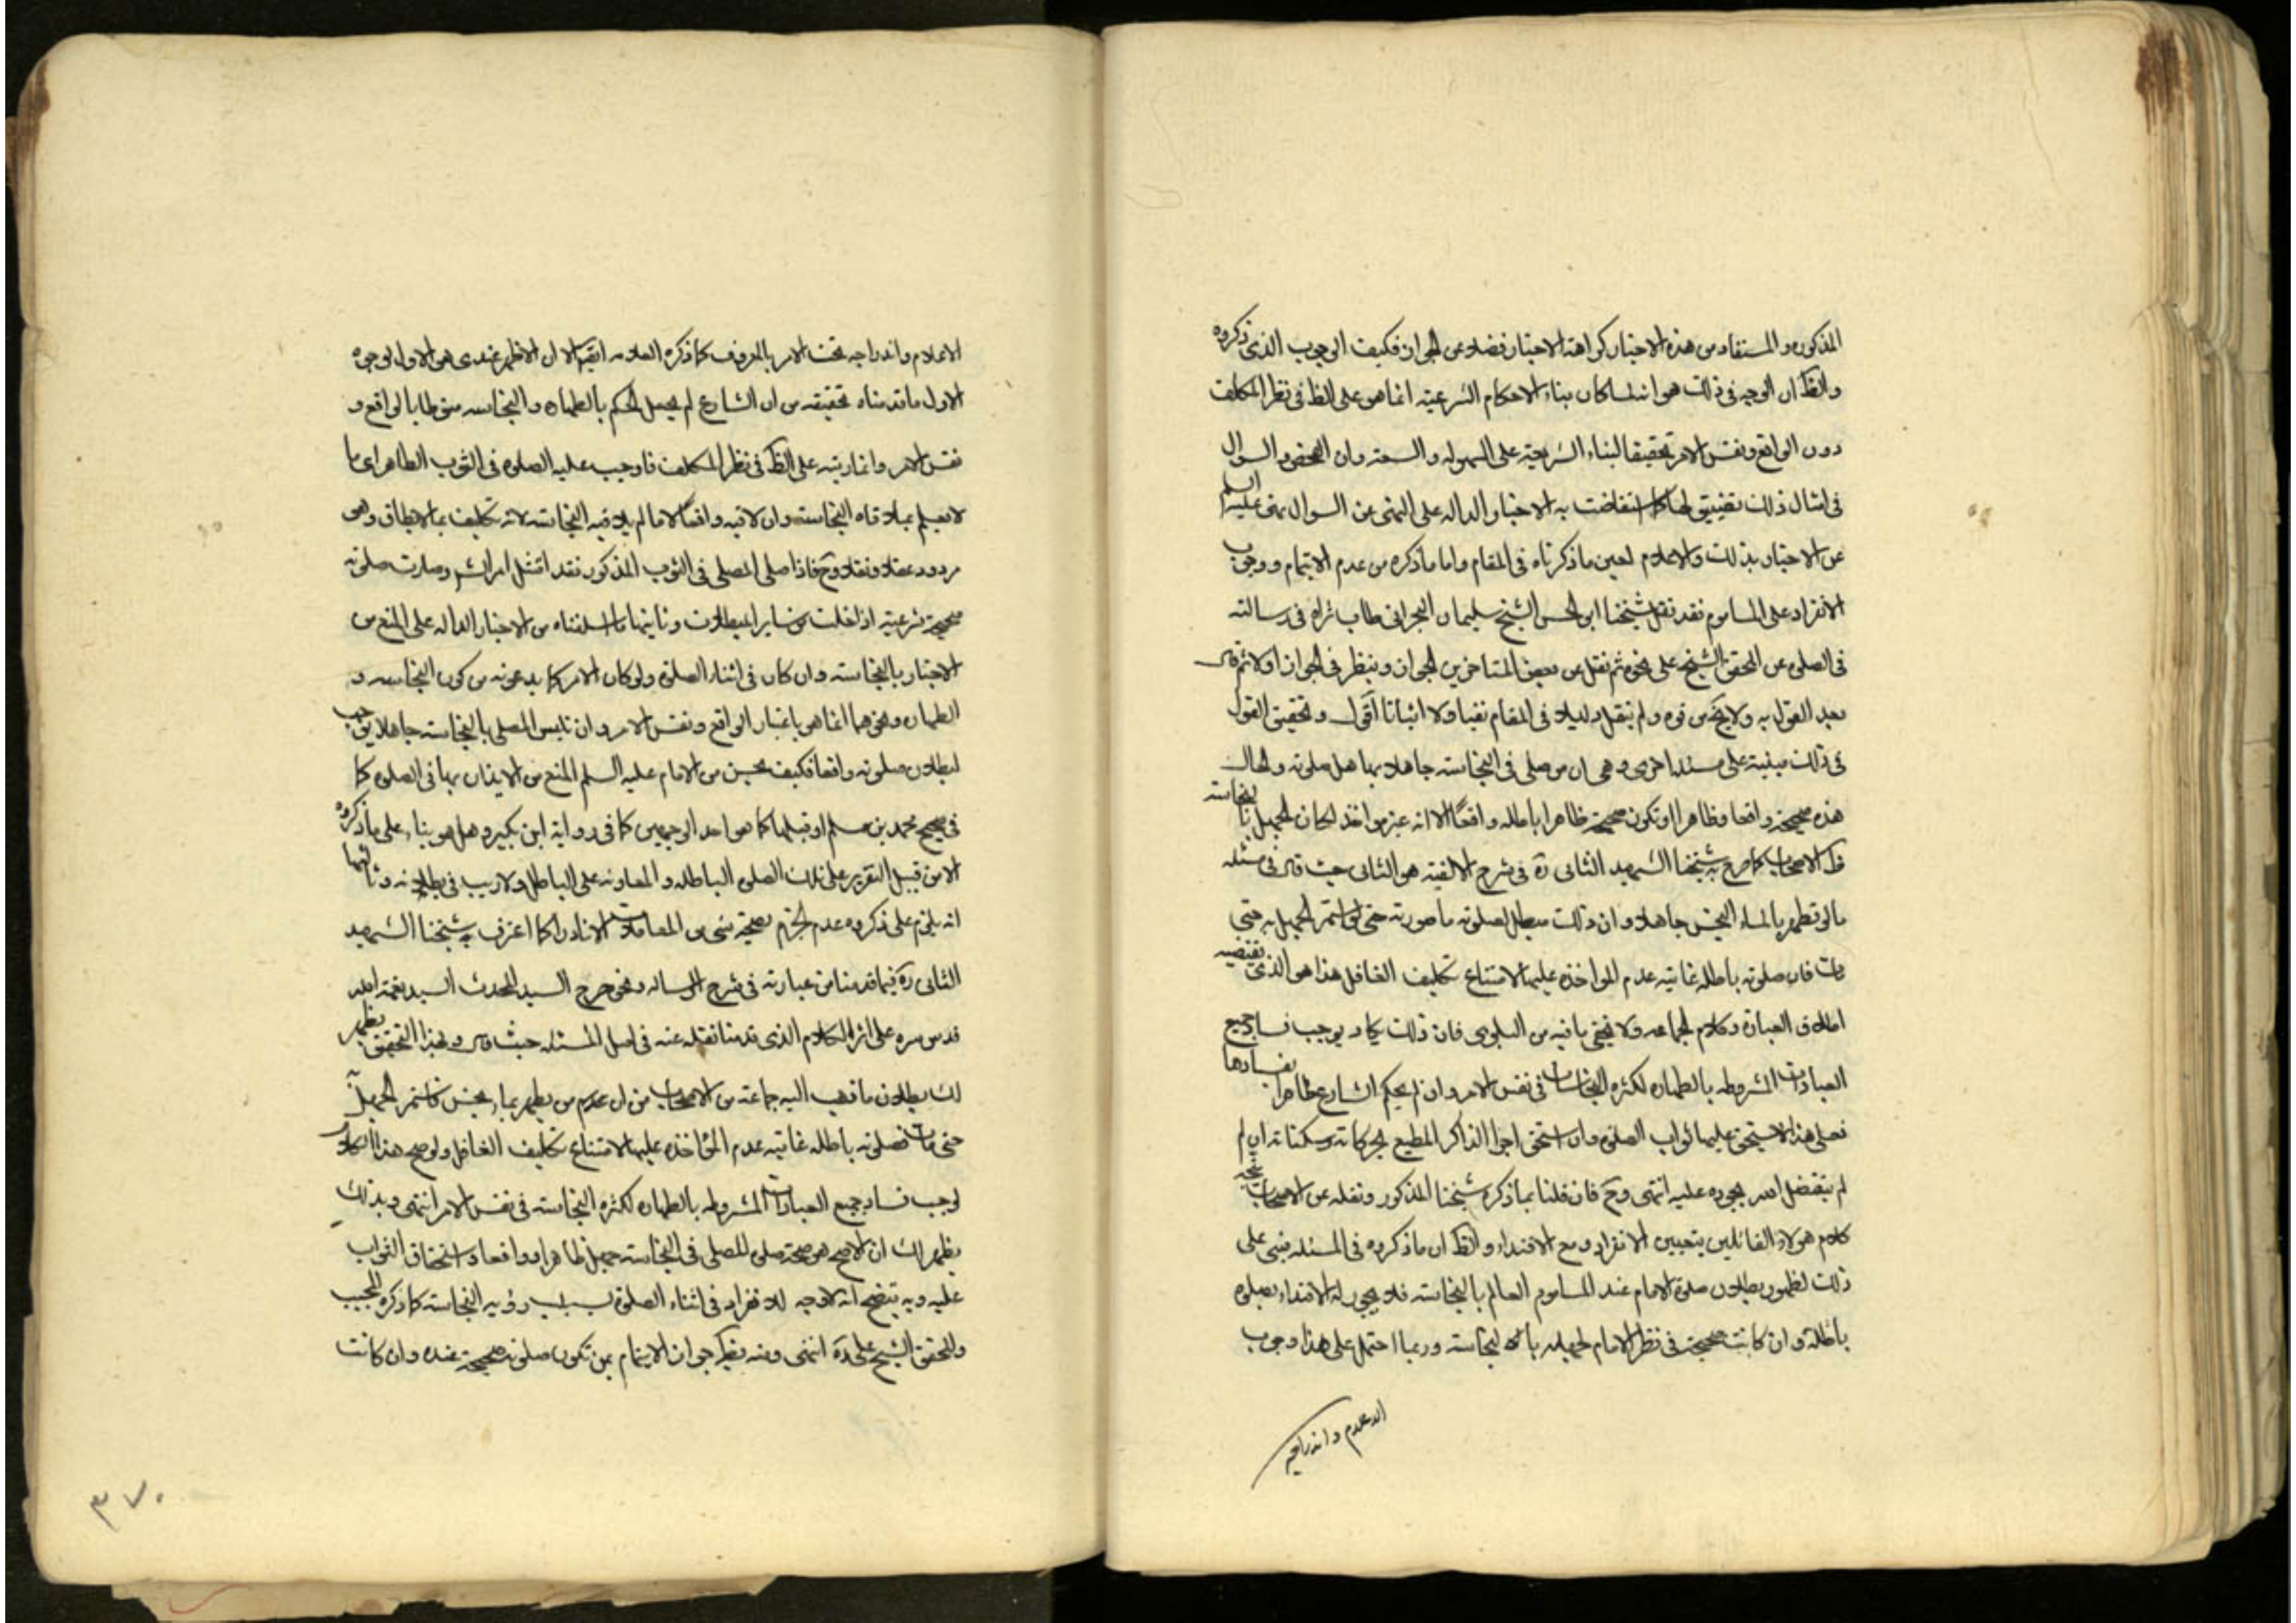 المذكوره والمستفاد من هذه الاخبار كراهة الاخبار فضلا عن الجواز فكيف الوجوب الذى ذكروه
والظ ان الوجه فى ذلك هو انه لما كان بناء الاحكام الشرعيه انما هو على الظ فى نظر المكلف
دون الواقع ونفس الامر تحقيقا لبناء الشريعة على السهوله والسعة وان الفحص والسوال
فى امثال ذلك تضييق لها كما استفاضت به الاخبار الداله على النهى عن السوال نهى عليه السلم
عن الاخبار بذلك والاعلام لعين ما ذكرناه فى المقام واما ما ذكره من عدم الايتمام ووجوب
الانفراد على الماموم فقد نقل شيخنا ابو الحسن الشيخ سليمان البحرانى طاب ثراه فى رسالته
فى الصلوة عن المحقق الشيخ على نحوه ثم نقل عن بعض المتاخرين الجواز ونظر فى الجواز اولا ثم قال
بعد القول به ولا يخ من قوه ولم ينقل دليلا فى المقام نفيا ولا اثباتا اقول وتحقيق القول
فى ذلك مبنية على مسئله اخرى وهى ان من صلى فى النجاسته جاهلا بها هل صلوته والحال
هذه صحيحة واقعا وظاهرا او تكون صحيحة ظاهرا باطله واقعاً الا انه غير مواخذ لمكان الجهل بالنجاسته
ظ الاصحاب كما صرح به شيخنا الشهيد الثانى ره فى شرح الالفيه هو الثانى حيث قال فى مسئله
ما لو تطهر بالماء النجس جاهلا وان ذلك مبطل لصلوته ما صورته حتى لو استمر الجهل به حتى
مات فان صلوته باطله غايته عدم المواخذه عليها لامتناع تكليف الغافل هذا هو الذى يقتضيه
اطلاق العبارة وكلام الجماعه ولا يخفى ما فيه من البلوى فان ذلك يكاد يوجب فساد جميع
العبادات المشروطه بالطهاره لكثره النجاسات فى نفس الامر وان لم يحكم الشارع ظاهرا بفسادها
فعلى هذا لا يستحق عليها ثواب الصلوة وان استحق اجر الذاكر المطيع بحركاته وسكناته ان لم
لم يتفضل الله بجوده عليه انتهى وح فان قلنا بما ذكره شيخنا المذكور ونقله عن الاصحاب يتجه
كلام هولاء القائلين بتعيين الانفراد ومنع الاقتداء والظ ان ما ذكروه فى المسئله مبنى على
ذلك لظهور بطلان صلوة الامام عند الماموم العالم بالنجاسته فلا يجوز له الاقتداء بصلوه
باطلة وان كانت صحيحة فى نظر الامام لجهله بالنجاسته وربما احتمل على هذا وجوب
الاعلام واندراجه
الاعلام واندراجه تحت الامر بالمعروف كما ذكره العلامه ايضا الا ان الاظهر عندى هو الاول لوجوه
الاول ما قدمناه تحقيقه من ان الشارع لم يجعل الحكم بالطهاره والنجاسه منوطا بالواقع و
نفس الامر وانما رتبه على الظ فى نظر المكلف فاوجب عليه الصلوه فى الثوب الطاهر اى ما
لا يعلم بملاقاه النجاسته وان لاقيه واقعاً لا ما لم يلاقيه النجاسته لانه تكليف بما لا يطاق وهو
مردود عقلا ونقلا وح فاذا صلى المصلى فى الثوب المذكور فقد امتثل امر الشم وصارت صلوته
صحيحة شرعية اذا خلت من ساير المبطلات وثانيها ما اسلفناه من الاخبار الداله على المنع من
الاخبار بالنجاسته وان كان فى اثناء الصلوة ولو كان الامر كما يدعونه من كون النجاسه و
الطهاره ونحوهما انما هو باعتبار الواقع ونفس الامر وان تلبس المصلى بالنجاسته جاهلا يوجب
لبطلان صلوته واقعا فكيف يحسن من الامام عليه السلم المنع من الايذان بها فى الصلوه كما
فى صحيح محمد بن مسلم او قبلها كما هو احد الوجهين كما فى رواية ابن بكير وهل هو بناء على ما ذكروه
الا من قبيل التقرير على تلك الصلوه الباطله والمعاونه على الباطل ولا ريب فى بطلانه وثالثها
انه يلزم على ذكروه عدم الجزم بصحة شى من العبادات الا نادرا كما اعترف به شيخنا الشهيد
الثانى ره فيما قدمنا من عبارته فى شرح الرساله ونحوه صرح السيد المحدث السيد نعمة الله
قدس سره على اثر الكلام الذى قدمنا نقله عنه فى اصل المسئله حيث قال وبهذا التحقيق يظهر
لك بطلان ما ذهب اليه جماعته من الاصحاب من ان من تطهر بماء نجس فاستمر الجهل به
حتى مات فصلوته باطله غايته عدم المؤاخذه عليها لامتناع تكليف الغافل ولو صح هذا الكلام
لوجب فساد جميع العبادات المشروطه بالطهاره لكثره النجاسته فى نفس الامر انتهى وبذلك
يظهر لك ان الاصح هو صحة صلوه المصلى فى النجاسته جهلا ظاهرا وواقعا واستحقاق الثواب
عليه وبه يتضح انه لا وجه للانفراد فى اثناء الصلوة بسبب رؤيه النجاسته كما ذكره المجيب
والمحقق الشيخ على ره انتهى ومنه يظهر جواز الايتمام بمن تكون صلوته صحيحة عنده وان كانت
٣٧٠